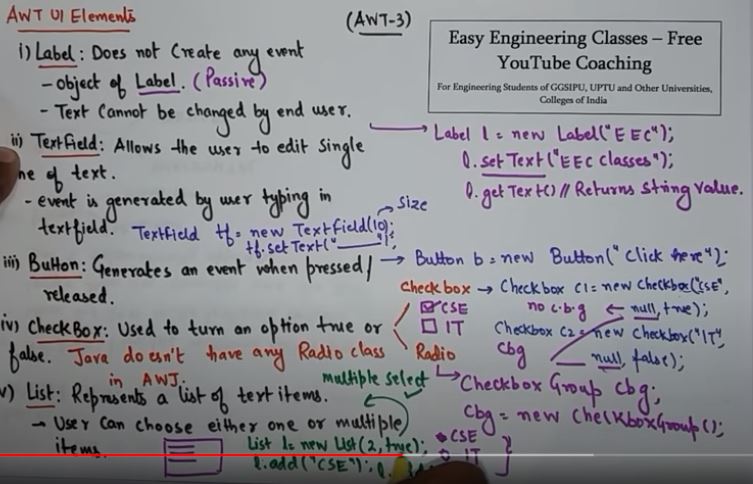 AWT UI Elements
(AWT-3)
Easy Engineering Classes – Free
YouTube Coaching
For Engineering Students of GGSIPU, UPTU and Other Universities,
Colleges of India
i) Label: Does not Create any event
- object of Label. (Passive)
- Text Cannot be changed by end user.
Label l = new Label("EEC");
l.setText("EEC classes");
l.getText() // Returns String value.
ii) TextField: Allows the user to edit Single
ne of text.
- event is generated by user typing in
textfield.
Size
TextField tf = new TextField(10);
tf.setText("        ");
iii) Button: Generates an event when pressed/
released.
Button b = new Button("Click here");
iv) CheckBox: Used to turn an option true or
false. Java doesn't have any Radio class
in AWT.
Checkbox
CSE
IT
Checkbox C1 = new Checkbox("CSE",
no c.b.g
null, true);
Checkbox C2 = new Checkbox("IT",
cbg
null, false);
Radio
Checkbox Group cbg;
cbg = new CheckboxGroup();
CSE
IT
v) List: Represents a list of text items.
multiple select
- User can choose either one or multiple
items.
List l = new List(2, true);
l.add("CSE");